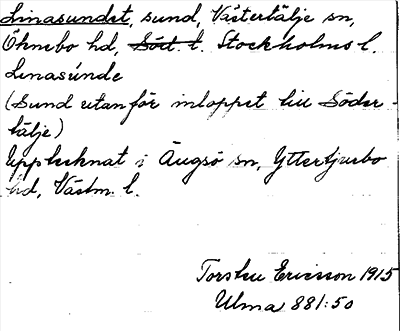 Linasundet, sund, Västertälje sn,
Öknebo hd, Söd. l. Stockholms l.
Linasúnde
(Sund utanför inloppet till Söder-
tälje)
Upptecknat i Ängsö sn, Yttertjurbo
hd, Västm. l.
Torsten Ericsson 1915
Ulma 881:50